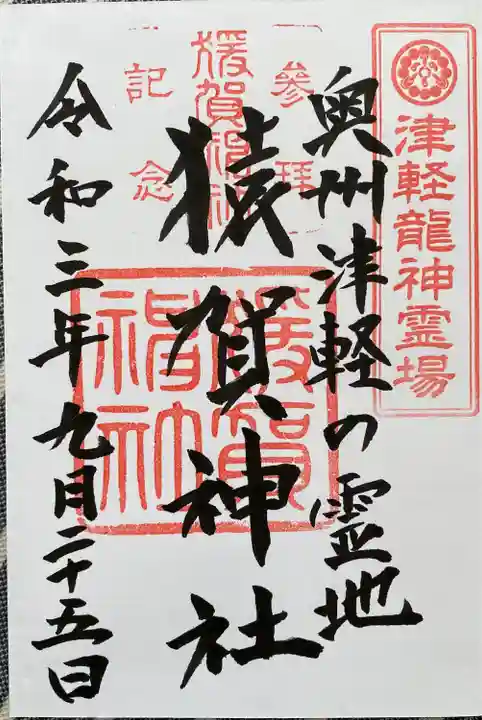 津軽龍神霊場
奥州津軽の霊地
參拜
記念
猿賀神社
猨賀神社
令和三年九月二十五日